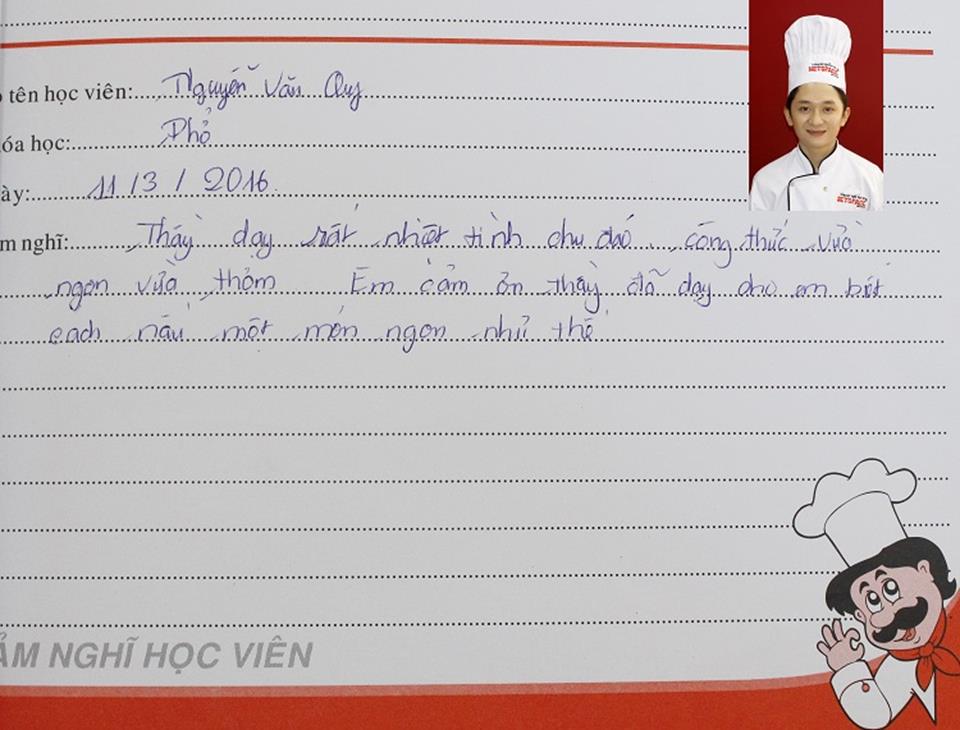 tên học viên: Nguyễn Văn Quy
óa học: Phở
ày: 11/3/2016
m nghĩ: Thầy dạy rất nhiệt tình chu đáo, công thức vừa
ngon vừa thơm Em cảm ơn thầy đã dạy cho em biết
cách nấu một món ngon như thế
ẢM NGHĨ HỌC VIÊN